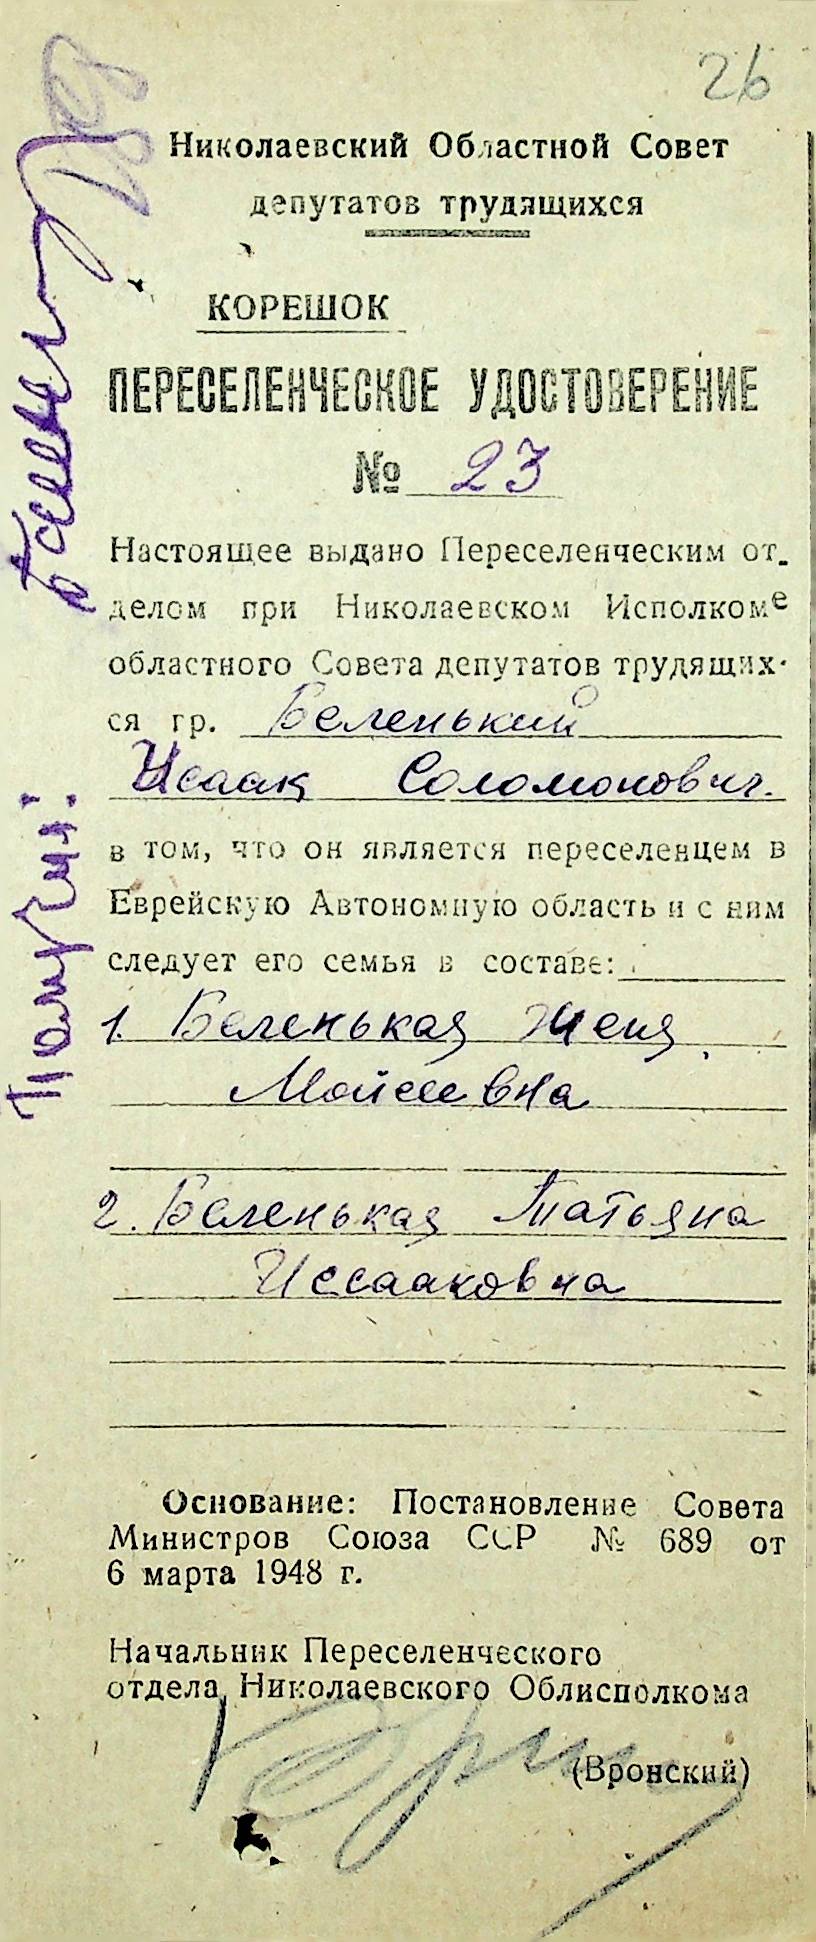 26
Николаевский Областной Совет
депутатов трудящихся
КОРЕШОК
ПЕРЕСЕЛЕНЧЕСКОЕ УДОСТОВЕРЕНИЕ
№ 23
Настоящее выдано Переселенческим от-
делом при Николаевском Исполкоме
областного Совета депутатов трудящих-
ся гр. Беленький
Исаак Соломонович.
в том, что он является переселенцем в
Еврейскую Автономную область и с ним
следует его семья в составе:
1. Беленькая Женя
Мойсеевна
2. Беленькая Татьяна
Иссааковна
Основание: Постановление Совета
Министров Союза ССР № 689 от
6 марта 1948 г.
Начальник Переселенческого
отдела Николаевского Облисполкома
(Вронский)
Получил: